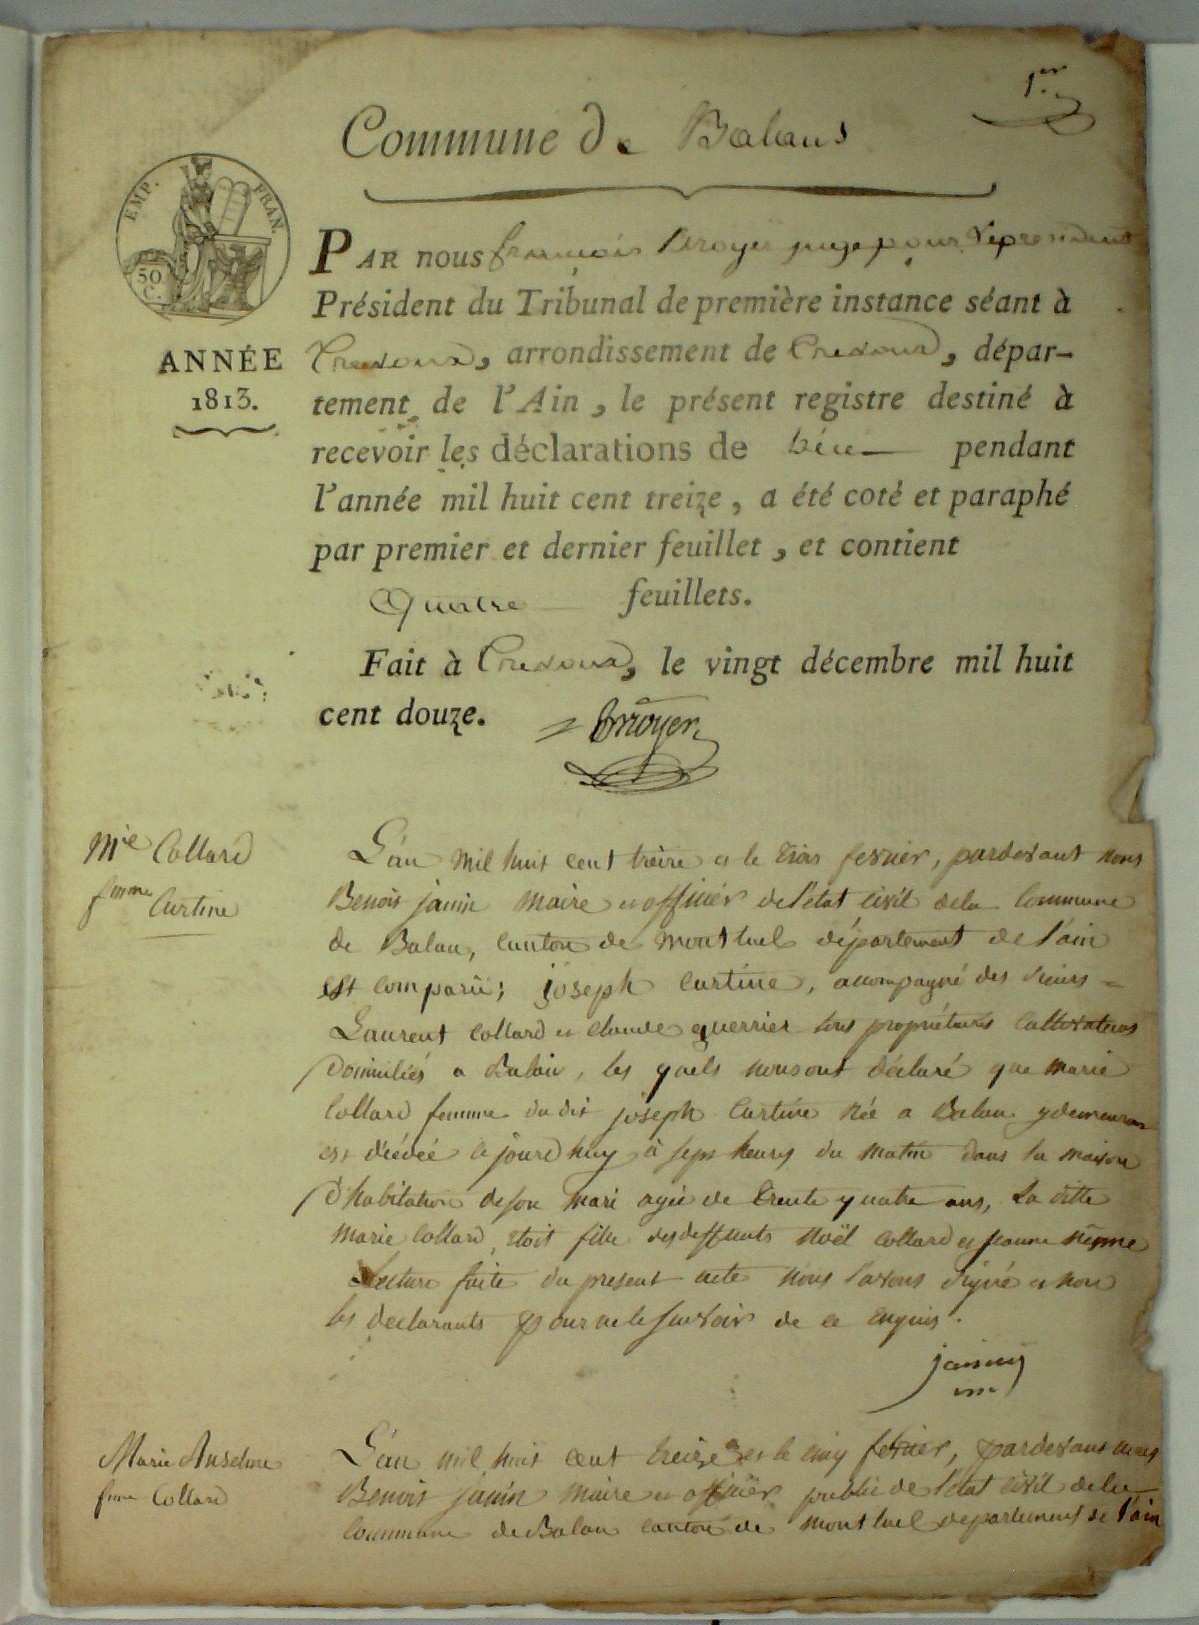 1.er
Commune de Balans
EMP. FRAN.
50 C.
ANNÉE
1813.
PAR nous françois juge pour le president
Président du Tribunal de première instance séant à
Trevoux, arrondissement de Trevoux, dépar-
tement de l'Ain, le présent registre destiné à
recevoir les déclarations de pendant
l'année mil huit cent treize, a été coté et paraphé
par premier et dernier feuillet, et contient
Quatre feuillets.
Fait à Trevoux, le vingt décembre mil huit
cent douze.
Mie Collard
femme Curtine
L'an mil huit cent treize et le trois fevrier, pardevant nous
Benoit janin Maire et officiér de l'état civil dela Commune
de Balan, canton de montluel département de l'ain
est comparû; joseph Curtine, accompagné des sieurs =
Laurent Collard et claude guerrier tous propriétaires Cultivateurs
Domiciliés a Balan, les quels nous ont déclaré que marie
Collard femme du dit joseph Curtine née a Balan y demeurant
est décédée ce jourd'huy à sept heures du matin dans la maison
D'habitation de son mari agée de trente quatre ans, La ditte
marie Collard étoit fille des deffunts Noël collard et jeanne
Lecture faite du present acte Nous l'avons signé et non
les declarants pour ne le savoir de ce enquis.
janin
Marie Anselme
fme Collard
L'an mil huit cent treize et le cinq fevrier, pardevant nous
Benoit janin Maire et officiér public de l'état civil dela
Commune de Balan canton de montluel departement de l'ain